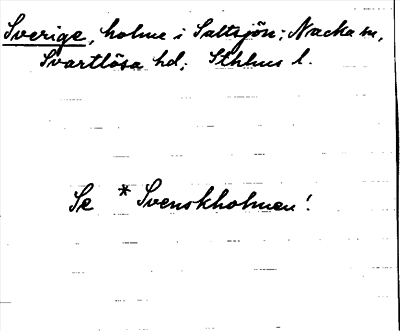 Sverige, holme i Saltsjön; Nacka sn,
Svartlösa hd; Sthlms l.
Se * Svenskholmen!